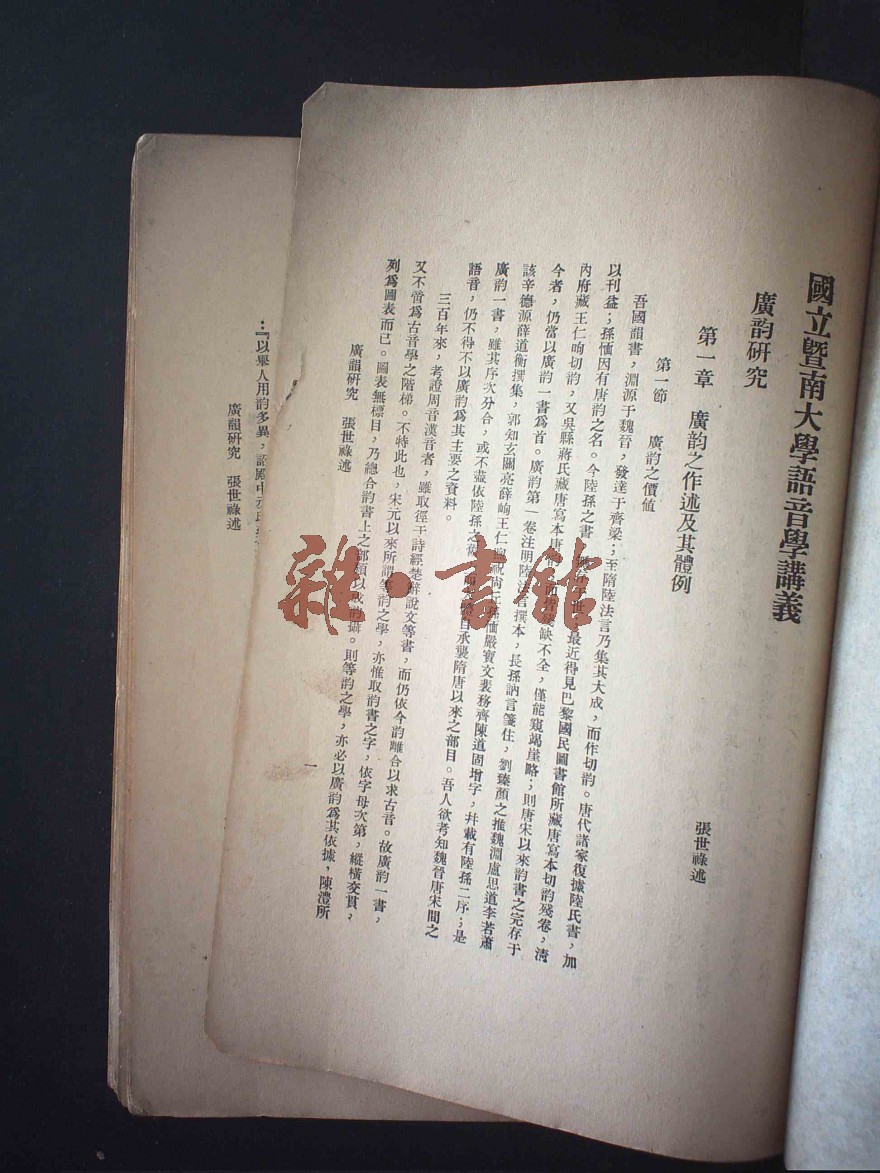 國立暨南大學語音學講義
廣韵研究
張世祿述
第一章 廣韵之作述及其體例
第一節 廣韵之價値
吾國韻書，淵源于魏晉，發達于齊梁；至隋陸法言乃集其大成，而作切韵。唐代諸家復據陸氏書，加
以刊益；孫愐因有唐韵之名。今陸孫之書，最近得見巴黎國民圖書館所藏唐寫本切韵殘卷，淸
內府藏王仁昫切韵，又吳縣蔣氏藏唐寫本唐韵，缺不全，僅能窺竭崖略；則唐宋以來韵書之完存于
今者，仍當以廣韵一書爲首。廣韵第一卷注明陸撰本，長孫訥言箋住，劉臻顏之推魏淵盧思道李若蕭
該辛德源薛道衡撰集，郭知玄關亮薛峋王仁昫祝尙丘孫愐嚴寶文裴務齊陳道固增字，幷載有陸孫二序；是
廣韵一書，雖其序次分合，或不盡依陸孫之舊，自承襲隋唐以來之部目。吾人欲考知魏晉唐宋間之
語音，仍不得不以廣韵爲其主要之資料。
三百年來，考證周音漢音者，雖取徑于詩經楚辭說文等書，而仍依今韵離合以求古音。故廣韵一書，
又不啻爲古音學之階梯。不特此也，宋元以來所謂等韵之學，亦惟取韵書之字，依字母次第，縱橫交貫，
列爲圖表而已。圖表無標目，乃總合韵書上之部類以成韵攝。則等韵之學，亦必以廣韵爲其依據，陳澧所
廣韻研究 張世祿述
一
…『以舉人用韵多異，詔殿中丞
廣韻研究 張世祿述
雜·書館